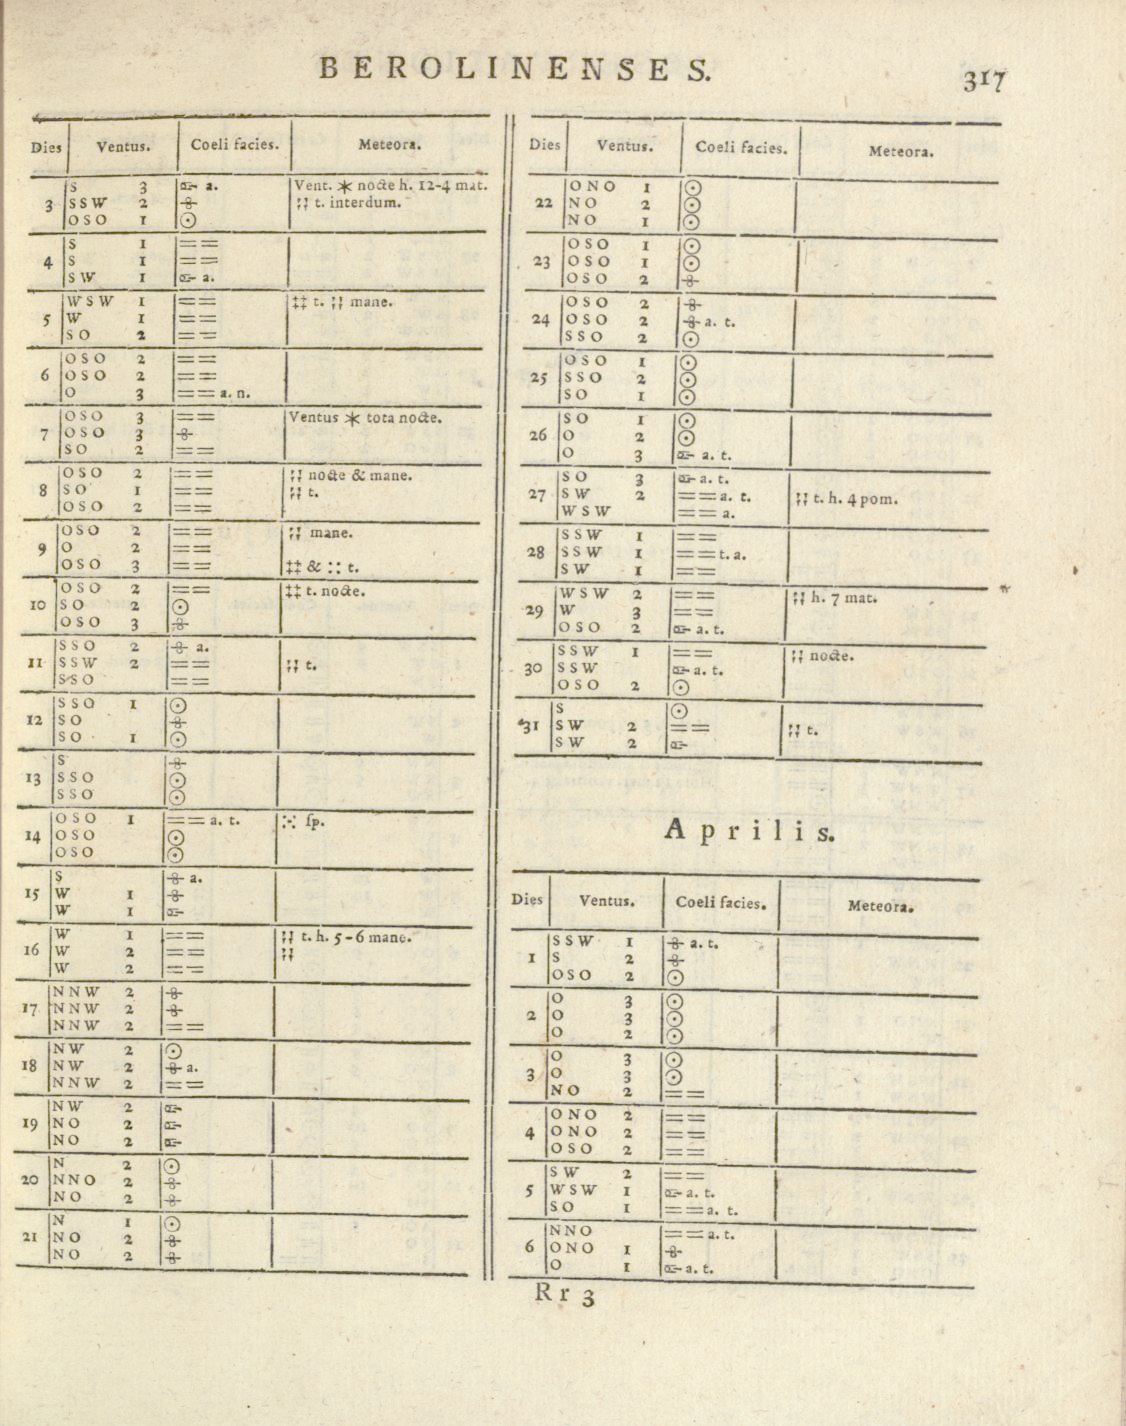 BEROLINENSES.
317
Dies Ventus. Coeli facies. Meteora.
S 3 a. Vent. ✶ nocte h. 12-4 mat.
3 SSW 2 t. interdum.
OSO 1 ☉
S 1 ==
4 S 1 ==
SW 1 a.
WSW 1 == ‡‡ t. ;; mane.
5 W 1 ==
SO 2 ==
OSO 2 ==
6 OSO 2 ==
O 3 == a. n.
OSO 3 == Ventus ✶ tota nocte.
7 OSO 3
SO 2 ==
OSO 2 == ;; nocte & mane.
8 SO 1 == ;; t.
OSO 2 ==
OSO 2 == ;; mane.
9 O 2 ==
OSO 3 == ‡‡ & :: t.
OSO 2 == ‡‡ t. nocte.
10 SO 2 ☉
OSO 3
SSO 2 a.
11 SSW 2 == ;; t.
SSO ==
SSO 1 ☉
12 SO
SO 1 ☉
S
13 SSO ☉
SSO ☉
OSO 1 == a. t. ſp.
14 OSO ☉
OSO ☉
S a.
15 W 1
W 1
W 1 == ;; t. h. 5-6 mane.
16 W 2 == ;;
W 2 ==
NNW 2
17 NNW 2
NNW 2 ==
NW 2 ☉
18 NW 2 a.
NNW 2 ==
NW 2
19 NO 2
NO 2
N 2 ☉
20 NNO 2
NO 2
N 1 ☉
21 NO 2
NO 2
Dies Ventus. Coeli facies. Meteora.
ONO 1 ☉
22 NO 2 ☉
NO 1 ☉
OSO 1 ☉
23 OSO 1 ☉
OSO 2
OSO 2
24 OSO 2 a. t.
SSO 2 ☉
OSO 1 ☉
25 SSO 2 ☉
SO 1 ☉
SO 1 ☉
26 O 2 ☉
O 3 a. t.
SO 3 a. t.
27 SW 2 == a. t. ;; t. h. 4 pom.
WSW == a.
SSW 1 ==
28 SSW 1 == t. a.
SW 1 ==
WSW 2 == ;; h. 7 mat.
29 W 3 ==
OSO 2 a. t.
SSW 1 == ;; nocte.
30 SSW a. t.
OSO 2 ☉
S ☉
31 SW 2 == ;; t.
SW 2
Aprilis.
Dies Ventus. Coeli facies. Meteora.
SSW 1 a. t.
1 S 2
OSO 2 ☉
O 3 ☉
2 O 3 ☉
O 2 ☉
O 3 ☉
3 O 3 ☉
NO 2 ==
ONO 2 ==
4 ONO 2 ==
OSO 2 ==
SW 2 ==
5 WSW 1 a. t.
SO 1 == a. t.
NNO == a. t.
6 ONO 1
O 1 a. t.
Rr 3